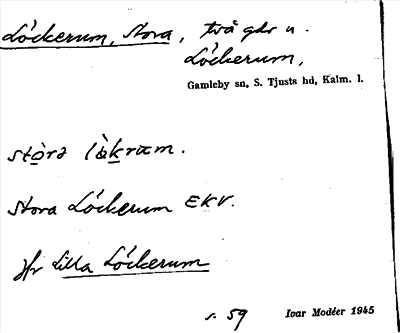 Löckerum, Stora, två gdr u.
Löckerum,
Gamleby sn, S. Tjusts hd, Kalm. l.
stòrə lə̀kram.
Stora Löckerum EKV.
Jfr Lilla Löckerum
s. 59 Ivar Modéer 1945